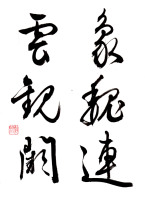 象魏連
雲観闕